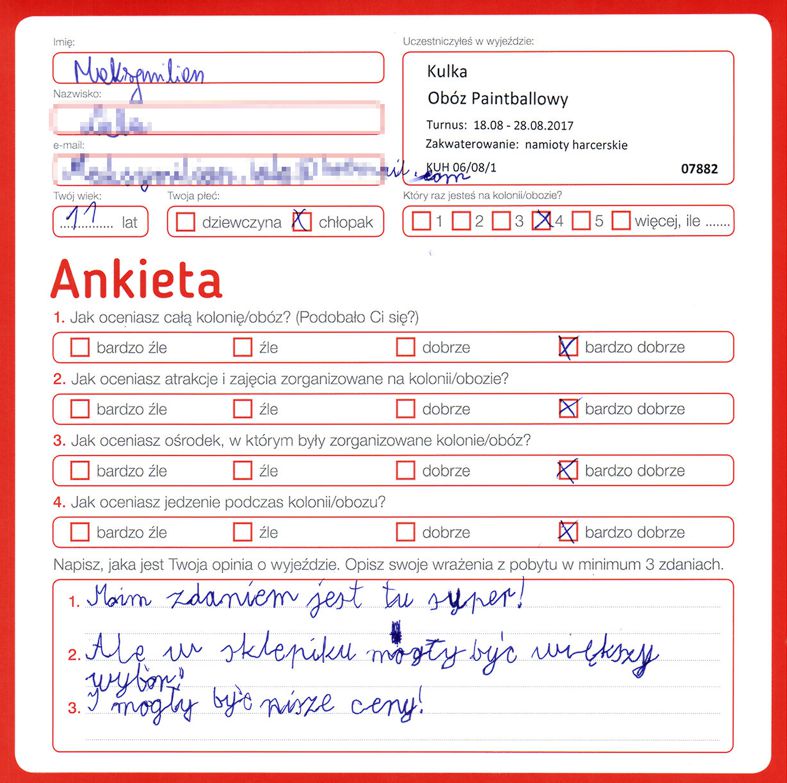 Imię:
Maksymilian
Nazwisko:
e-mail:
.com
Twój wiek:
11 lat
Twoja płeć:
dziewczyna chłopak
Uczestniczyłeś w wyjeździe:
Kulka
Obóz Paintballowy
Turnus: 18.08 - 28.08.2017
Zakwaterowanie: namioty harcerskie
KUH 06/08/1 07882
Który raz jesteś na kolonii/obozie?
1 2 3 4 5 więcej, ile .......
Ankieta
1. Jak oceniasz całą kolonię/obóz? (Podobało Ci się?)
bardzo źle źle dobrze bardzo dobrze
2. Jak oceniasz atrakcje i zajęcia zorganizowane na kolonii/obozie?
bardzo źle źle dobrze bardzo dobrze
3. Jak oceniasz ośrodek, w którym były zorganizowane kolonie/obóz?
bardzo źle źle dobrze bardzo dobrze
4. Jak oceniasz jedzenie podczas kolonii/obozu?
bardzo źle źle dobrze bardzo dobrze
Napisz, jaka jest Twoja opinia o wyjeździe. Opisz swoje wrażenia z pobytu w minimum 3 zdaniach.
1. Moim zdaniem jest tu super!
2. Ale w sklepiku mogły być większy
wybór!
3. I mogły być nisze ceny!